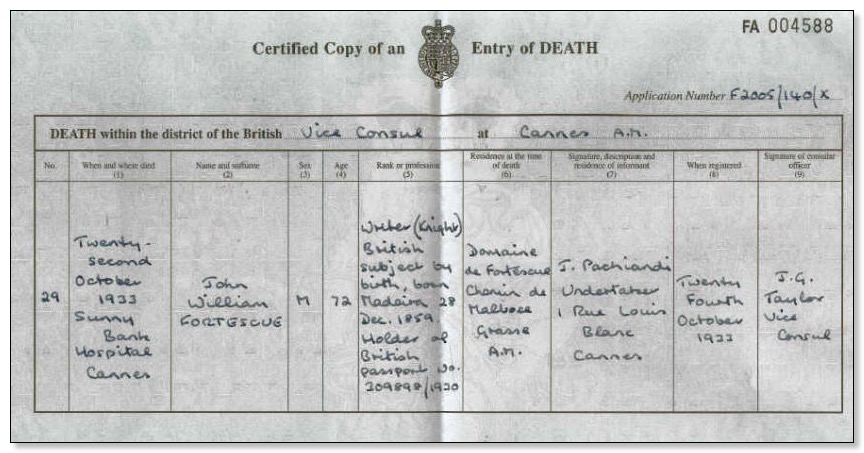 FA 004588
Certified Copy of an Entry of DEATH
Application Number F2005/140/X
DEATH within the district of the British Vice Consul at Cannes A.M.
No. When and where died Name and surname Sex Age Rank or profession Residence at the time of death Signature, description and residence of informant When registered Signature of consular officer
(1) (2) (3) (4) (5) (6) (7) (8) (9)
29
Twenty-
second
October
1933
Sunny
Bank
Hospital
Cannes
John
William
FORTESCUE
M
72
Writer (Knight)
British
subject by
birth, born
Madeira 28
Dec. 1859.
Holder of
British
passport No.
209898/1920
Domaine
de Fortescue
Chemin de
Malbosc
Grasse
A.M.
J. Pachiandi
Undertaker
1 Rue Louis
Blanc
Cannes
Twenty
Fourth
October
1933
J.G.
Taylor
Vice
Consul